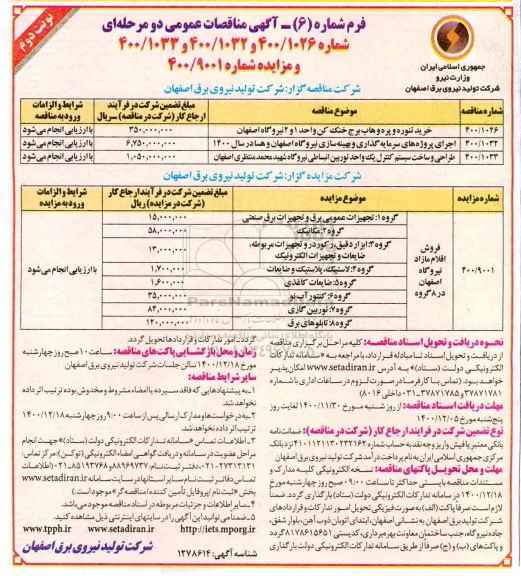 نوبت دوم
فرم شماره (۶) ـ آگهی مناقصات عمومی دو مرحله‌ای
شماره ۴۰۰/۱۰۲۶ و ۴۰۰/۱۰۳۲ و ۴۰۰/۱۰۳۳
و مزایده شماره ۴۰۰/۹۰۰۱
جمهوری اسلامی ایران
وزارت نیرو
شرکت تولید نیروی برق اصفهان
شرکت مناقصه گزار: شرکت تولید نیروی برق اصفهان
شماره مناقصه
موضوع مناقصه
مبلغ تضمین شرکت در فرآیند ارجاع کار (شرکت در مناقصه) ـ سریال
شرایط و الزامات ورود به مناقصه
۴۰۰/۱۰۲۶ خرید تنوره و پره و هاب برج خنک کن واحد ۱ و ۲ نیروگاه اصفهان ۳۵۰,۰۰۰,۰۰۰ با ارزیابی انجام می‌شود
۴۰۰/۱۰۳۲ اجرای پروژه‌های سرمایه گذاری و بهینه سازی نیروگاه اصفهان و هسا در سال ۱۴۰۰ ۶,۷۵۰,۰۰۰,۰۰۰ با ارزیابی انجام می‌شود
۴۰۰/۱۰۳۳ طراحی و ساخت سیستم کنترل یک واحد توربین انبساطی نیروگاه شهید محمد منتظری اصفهان ۱,۰۵۰,۰۰۰,۰۰۰ با ارزیابی انجام می‌شود
شرکت مزایده گزار: شرکت تولید نیروی برق اصفهان
شماره مزایده
موضوع مزایده
مبلغ تضمین شرکت در فرآیند ارجاع کار (شرکت در مزایده) ریال
شرایط و الزامات ورود به مزایده
۴۰۰/۹۰۰۱
فروش اقلام مازاد نیروگاه اصفهان در ۸ گروه
گروه ۱: تجهیزات عمومی برق و تجهیزات برق صنعتی ۱۵,۰۰۰,۰۰۰
گروه ۲: مکانیک ۵۸,۰۰۰,۰۰۰
گروه ۳: ابزار دقیق، رکوردر و تجهیزات مربوطه، ضایعات و تجهیزات الکترونیک ۱۳,۰۰۰,۰۰۰
گروه ۴: لاستیک، پلاستیک و ضایعات ۱,۷۰۰,۰۰۰
گروه ۵: ضایعات کاغذی ۱,۶۰۰,۰۰۰
گروه ۶: کنتور آب نو ۳۵,۰۰۰,۰۰۰
گروه ۷: توربین گازی ۸۴,۰۰۰,۰۰۰
گروه ۸: تابلوهای برق ۱۲۰,۰۰۰,۰۰۰
با ارزیابی انجام می‌شود
نحوه دریافت و تحویل اسناد مناقصه: کلیه مراحل برگزاری مناقصه
از دریافت و تحویل اسناد تا مبادله قرارداد، با مراجعه به «سامانه تدارکات
الکترونیکی دولت (ستاد)» به آدرس www.setadiran.ir امکان پذیر
خواهد بود. (تماس با کارفرما در صورت لزوم در ساعات اداری با شماره
۳۷۸۷۱۷۸۱ و ۳۷۸۷۱۷۸۵-۰۳۱ داخلی ۸۰۱۶)
مهلت دریافت اسناد مناقصه: از روز شنبه مورخ ۱۴۰۰/۱۱/۳۰ لغایت روز
پنج‌شنبه مورخ ۱۴۰۰/۱۲/۰۵
نوع تضمین شرکت در فرآیند ارجاع کار (شرکت در مناقصه): ضمانت‌نامه
بانکی معتبر یا فیش واریز وجه نقد به حساب شماره نزد بانک
مرکزی جمهوری اسلامی ایران به نام پرداخت درآمد شرکت تولید نیروی برق اصفهان
مهلت و محل تحویل پاکتهای مناقصه: نسخه الکترونیکی کلیه مدارک و
مستندات مناقصه بایستی حداکثر تا ساعت ۰۹:۰۰ صبح روز چهارشنبه مورخ
۱۴۰۰/۱۲/۱۸ در سامانه تدارکات الکترونیکی دولت (ستاد) بارگذاری گردد. ضمناً
لازم است صرفاً پاکت (الف) به صورت فیزیکی تحویل امور تدارکات و قراردادهای
شرکت تولید نیروی برق اصفهان به نشانی اصفهان، ابتدای اتوبان ذوب آهن، بلوار شفق،
جاده نیروگاه، جنب ساختمان معاونت بهره‌برداری، کدپستی ۸۱۷۸۶۱۵۶۵۱ گردد
و پاکت‌های (ب) و (ج) صرفاً از طریق سامانه تدارکات الکترونیکی دولت بارگذاری
گردد. امور تدارکات و قراردادها تحویل گردد.
زمان و محل بازگشایی پاکت‌های مناقصه: ساعت ۱۰ صبح روز چهارشنبه
مورخ ۱۴۰۰/۱۲/۱۸ سالن جلسات شرکت تولید نیروی برق اصفهان
سایر شرایط مناقصه:
۱ـ به پیشنهادهایی که فاقد سپرده یا امضاء مشروط و مخدوش بوده ترتیب اثر داده
نخواهد شد.
۲ـ به درخواست‌ها و مدارک ارسالی پس از ساعت ۹:۰۰ روز چهارشنبه ۱۴۰۰/۱۲/۱۸
ترتیب اثر داده نخواهد شد.
۳ـ اطلاعات تماس «سامانه تدارکات الکترونیکی دولت (ستاد)» جهت انجام
مراحل عضویت در سامانه و دریافت گواهی امضاء الکترونیکی (توکن): مرکز تماس:
۰۲۱-۲۷۳۱۳۱۳۱ دفتر ثبت نام: ۸۸۹۶۹۷۳۷ و ۸۵۱۹۳۷۶۸-۰۲۱ (اطلاعات
تماس دفاتر ثبت نام سایر استانها در سایت سامانه www.setadiran.ir
بخش «ثبت نام/پروفایل تأمین کننده/مناقصه گر» موجود است.)
۴ـ سایر اطلاعات و جزئیات مربوطه در اسناد مناقصه موجود می‌باشد.
۵ـ ضمناً می‌توانید این آگهی را در سایتهای اینترنتی ذیل مشاهده کنید.
www.tpph.ir www.setadiran.ir http://iets.mporg.ir
شناسه آگهی: ۱۲۷۸۶۱۴ شرکت تولید نیروی برق اصفهان